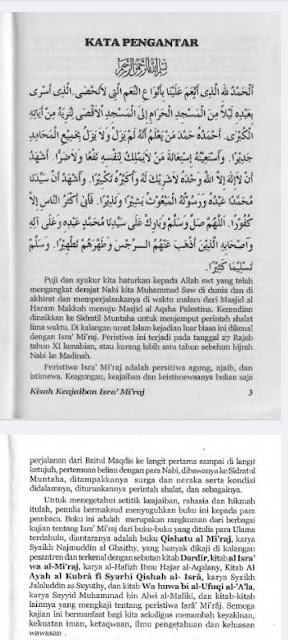 KATA PENGANTAR
بسم الله الرحمن الرحيم
اَلْحَمْدُ لِلّٰهِ الَّذِى أَنْعَمَ عَلَيْنَا بِأَنْوَاعِ النِّعَمِ الَّتِى لَا تُحْصَى. الَّذِى أَسْرَى
بِعَبْدِهِ لَيْلًا مِنَ الْمَسْجِدِ الْحَرَامِ إِلَى الْمَسْجِدِ الْأَقْصَى لِنُرِيَهُ مِنْ آيَاتِهِ
الْكُبْرَى. أَحْمَدُهُ حَمْدَ مَنْ يَعْلَمُ أَنَّهُ لَمْ يَزَلْ وَلَا يَزَلُ بِجَمِيْعِ الْمَحَامِدِ
جَدِيْرًا. وَأَسْتَعِيْنُهُ إِسْتِعَانَةَ مَنْ لَا يَمْلِكُ لِنَفْسِهِ نَفْعًا وَلَا ضَرًّا. أَشْهَدُ
أَنْ لَا إِلٰهَ إِلَّا اللهُ وَحْدَهُ لَا شَرِيْكَ لَهُ وَأُكَبِّرُهُ تَكْبِيْرًا. وَأَشْهَدُ أَنَّ سَيِّدَنَا
مُحَمَّدًا عَبْدُهُ وَرَسُوْلُهُ الْمَبْعُوْثُ بَشِيْرًا وَنَذِيْرًا. فَأَبَى أَكْثَرُ النَّاسِ إِلَّا
كُفُوْرًا. اَللّٰهُمَّ صَلِّ وَسَلِّمْ وَبَارِكْ عَلَى سَيِّدِنَا مُحَمَّدٍ عَبْدِهِ وَعَلَى آلِهِ
وَأَصْحَابِهِ الَّذِيْنَ أَذْهَبَ عَنْهُمُ الرِّجْسَ وَطَهَّرَهُمْ تَطْهِيْرًا. وَسَلَّمَ
تَسْلِيْمًا كَثِيْرًا.
Puji dan syukur kita haturkan kepada Allah swt yang telah
mengangkat derajat Nabi kita Muhammad Saw di dunia dan di
akhirat dan memperjalankanya di waktu malam dari Masjid al
Haram Makkah menuju Masjid al Aqsha Palestina. Kemudian
dinaikkan ke Sidrotil Muntaha untuk menjemput perintah shalat
lima waktu. Di kalangan umat Islam kejadian luar biasa ini dikenal
dengan Isra' Mi'raj. Peristiwa ini terjadi pada tanggal 27 Rajab
tahun XI kenabian, atau kurang lebih satu tahun sebelum hijrah
Nabi ke Madinah.
Peristiwa Isra' Mi'raj adalah persitiwa agung, ajaib, dan
istimewa. Keagungan, keajaiban dan keistimewanya bukan saja
Kisah Keajaiban Isra' Mi'raj 3
perjalanan dari Baitul Maqdis ke langit pertama sampai di langit
ketujuh, pertemuan beliau dengan para Nabi, dibawanya ke Sidrotul
Muntaha, ditampakkanya surga dan neraka serta kondisi
didalamnya, diturunkanya perintah shalat, dan sebagainya.
Untuk mengetahui setitik keajaiban, rahasia dan hikmah
itulah, penulis bermaksud menyuguhkan buku ini kepada para
pembaca. Buku ini adalah merupakan rangkuman dari berbagai
kajian tentang Isra' Mi'raj dari buku-buku yang ditulis para Ulama
terdahulu, diantaranya adalah buku Qishatu al Mi'raj, karya
Syaikh Najmuddin al Ghaithy, yang banyak dikaji di kalangan
pesantren dan terkenal dengan sebutan kitab Dardir, kitab al Isra'
wa al-Mi'raj, karya al-Hafizh Ibnu Hajar al-Aqalany, Kitab Al
Ayah al Kubrâ fi Syarhi Qishah al- Isrâ, karya Syaikh
Jalaluddin as Suyuthy, dan kitab Wa huwa bi al-Ufuqi al-A'la,
karya Sayyid Muhammad bin Alwi al-Maliki, dan kitab-kitab
lainnya yang mengkaji tentang peristiwa Isrâ' Mi'râj. Semoga
kajian ini bermanfaat bagi kita sekaligus menambah keyakinan,
kekuatan iman, ketaqwaan, ilmu pengetahuan dan keluasan
wawasan .